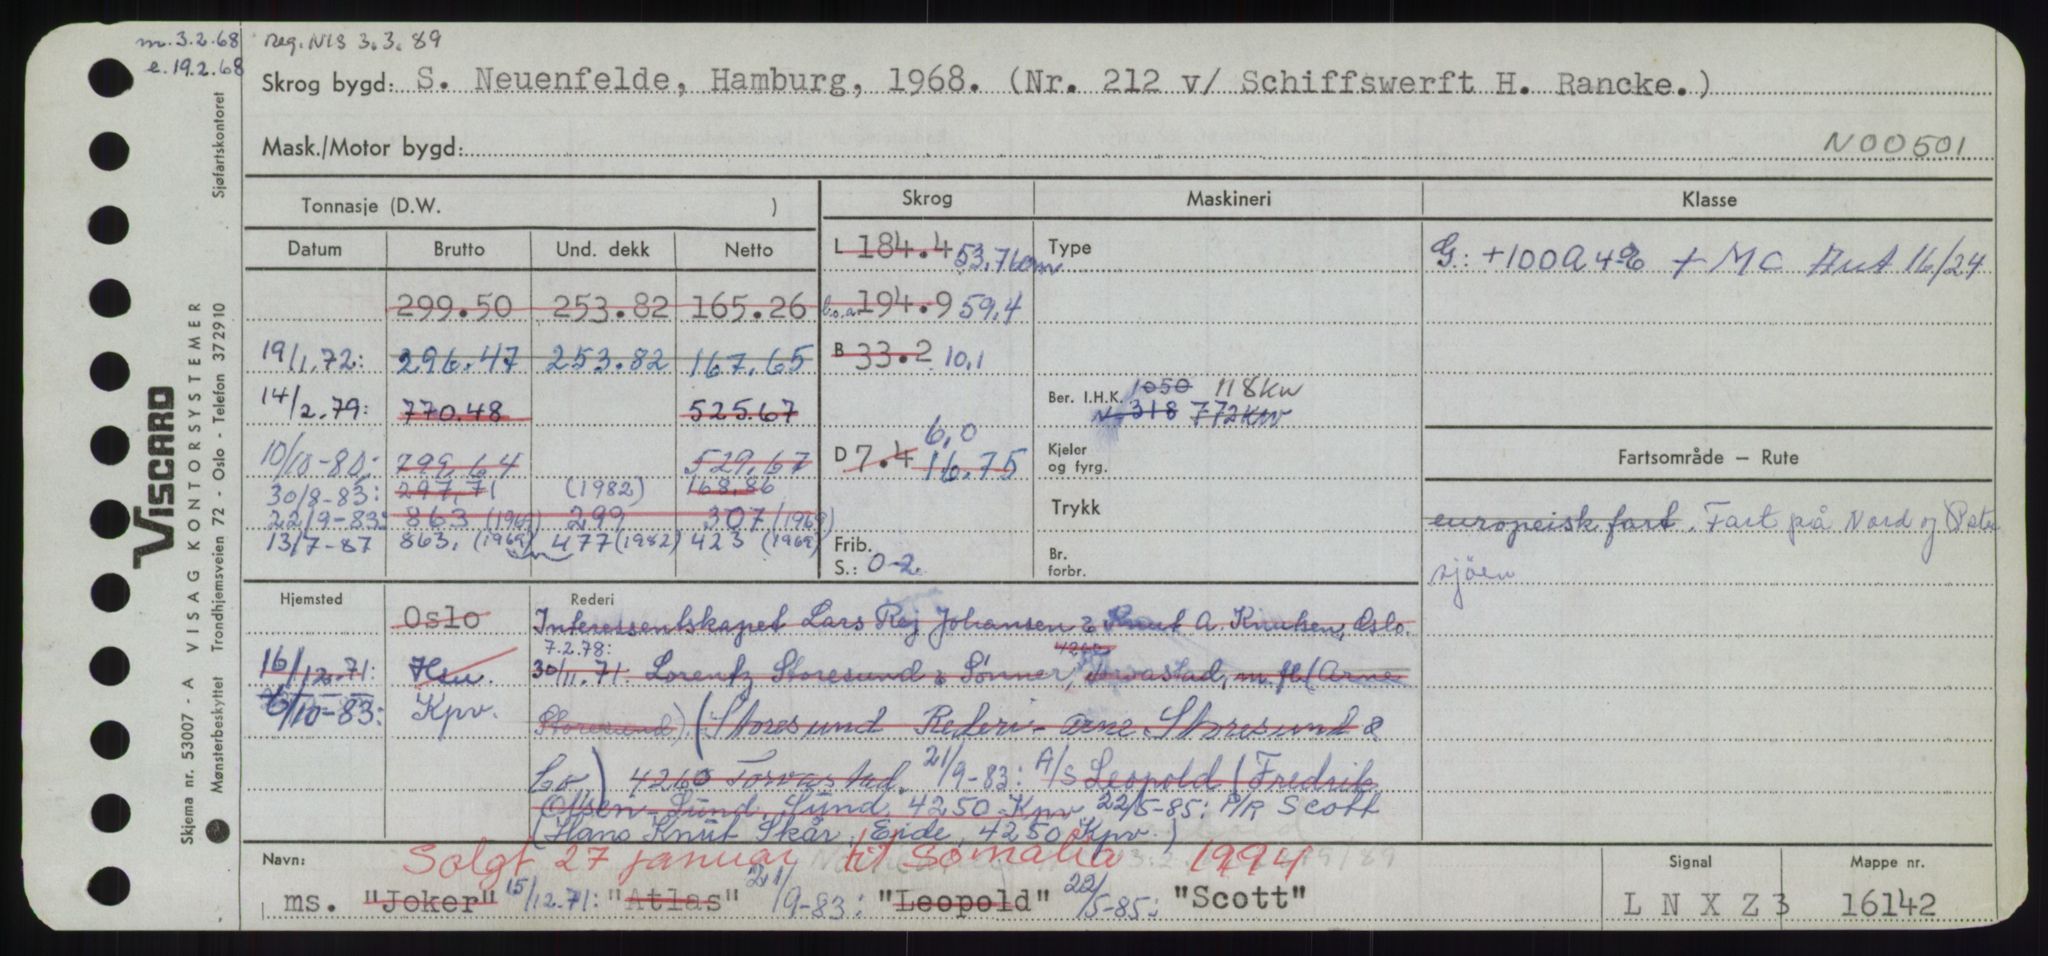 m. 3.2.68 reg. NIS 3.3.89
e. 19.2.68
Skrog bygd: S. Neuenfelde, Hamburg, 1968. (Nr. 212 v/ Schiffswerft H. Rancke.)
Mask./Motor bygd: N00501
Tonnasje (D.W. )
Skrog Maskineri Klasse
Datum Brutto Und. dekk Netto
L 184.4 53.76 m Type G: +100A4 + MC Aut 16/24
299.50 253.82 165.26 l.o.a. 194.9 59,4
19/1.72: 296.47 253.82 167.65 B 33.2 10,1
14/2.79: 770.48 525.67 Ber. I.H.K. 1050 118kw
N 318 772kw
6,0
10/10-80: 799,64 529,67 D 7.4 16.75 Kjeler og fyrg. Fartsområde – Rute
30/8-83: 297,71 (1982) 168.86
22/9-83: 863 (1969) 299 307 (1969) Trykk europeisk fart. Fart på Nord og Øster
13/7-87 863, (1969) 477 (1982) 423 (1969) Frib. S.: 0-2 Br. forbr. sjöen
Hjemsted Rederi
Oslo Interessentskapet Lars Rej Johansen & Knut A. Knutsen, Oslo.
7.2.78: 4260
16/12.71: Hsu. 30/11.71: Lorentz Storesund & Sønner, Torvastad, m. fl. (Arne
6/10-83: Kpv. Storesund) (Storesund Rederi - Arne Storesund &
Co) 4260 Torvastad. 21/9-83: A/S Leopold (Fredrik
Ottsen Lund, Sund, 4250 Kpv. 22/5-85: P/R Scott
(Hans Knut Skår, Eide, 4250 Kpv.)
Solgt 27 januar til Somalia 1994
Navn: Signal Mappe nr.
ms. "Joker" 15/12.71: "Atlas" 21/9-83: "Leopold" 22/5-85: "Scott" L N X Z 3 16142
Sjøfartskontoret
Skjema nr. 53007 - A VISAG KONTORSYSTEMER
Mønsterbeskyttet Trondhjemsveien 72 - Oslo - Telefon 372910
VISCARD